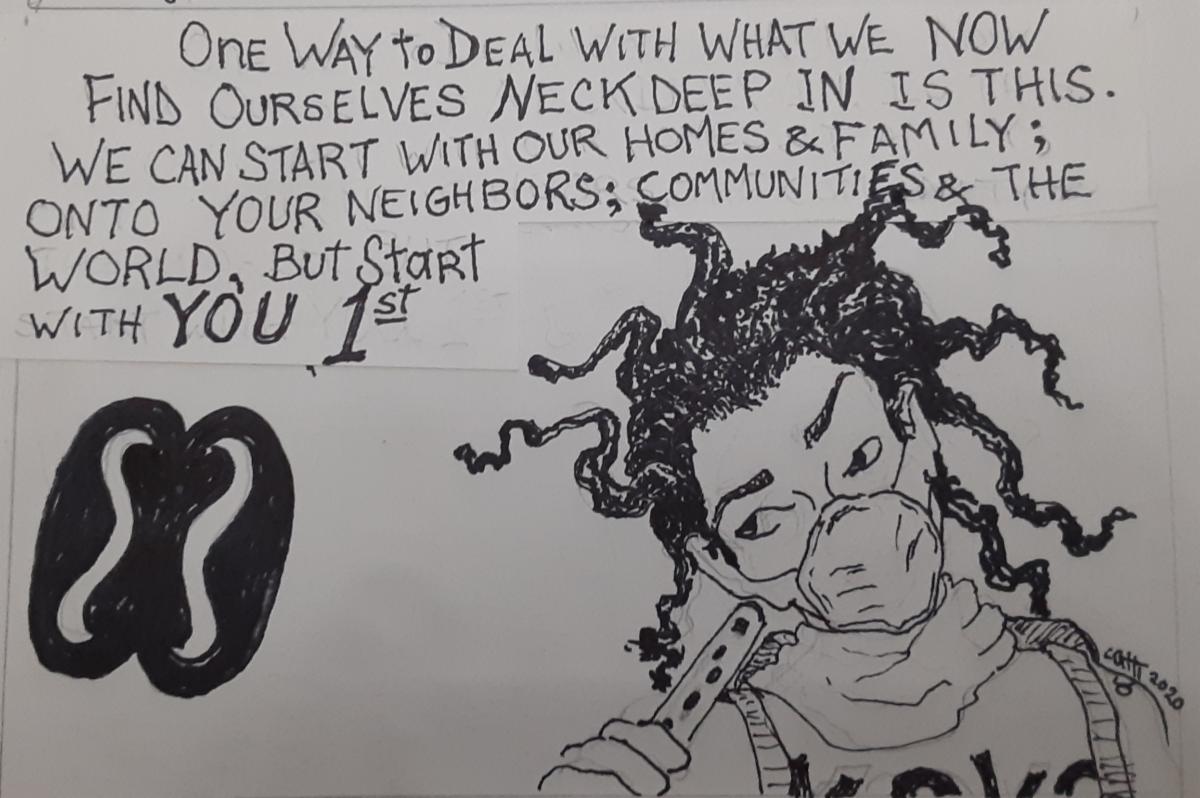 ONE WAY to DEAL WITH WHAT WE NOW
FIND OURSELVES NECK DEEP IN IS THIS.
WE CAN START WITH OUR HOMES & FAMILY;
ONTO YOUR NEIGHBORS; COMMUNITIES & THE
WORLD, BUT Start
WITH YOU 1st
2020